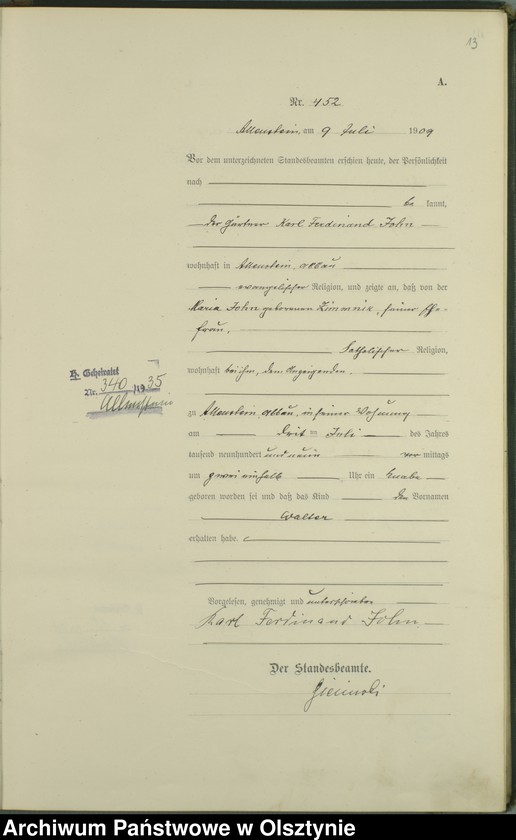 13
A.
Nr. 452
Allenstein, am 9 Juli 1909
Vor dem unterzeichneten Standesbeamten erschien heute, der Persönlichkeit
nach
be kannt,
der Gärtner Karl Ferdinand John
wohnhaft in Allenstein,
evangelischer Religion, und zeigte an, daß von der
Maria John geborenen seiner Ehe-
frau,
katholischer Religion,
wohnhaft bei ihm, dem Anzeigenden.
H. Geheiratet
Nr. 340/1935
Allenstein
zu Allenstein, in seiner Wohnung
am Juli des Jahres
tausend neunhundert und neun vor mittags
um zwei einhalb Uhr ein Knabe
geboren worden sei und daß das Kind den Vornamen
Walter
erhalten habe.
Vorgelesen, genehmigt und unterschrieben
Karl Ferdinand John
Der Standesbeamte.
Archiwum Państwowe w Olsztynie